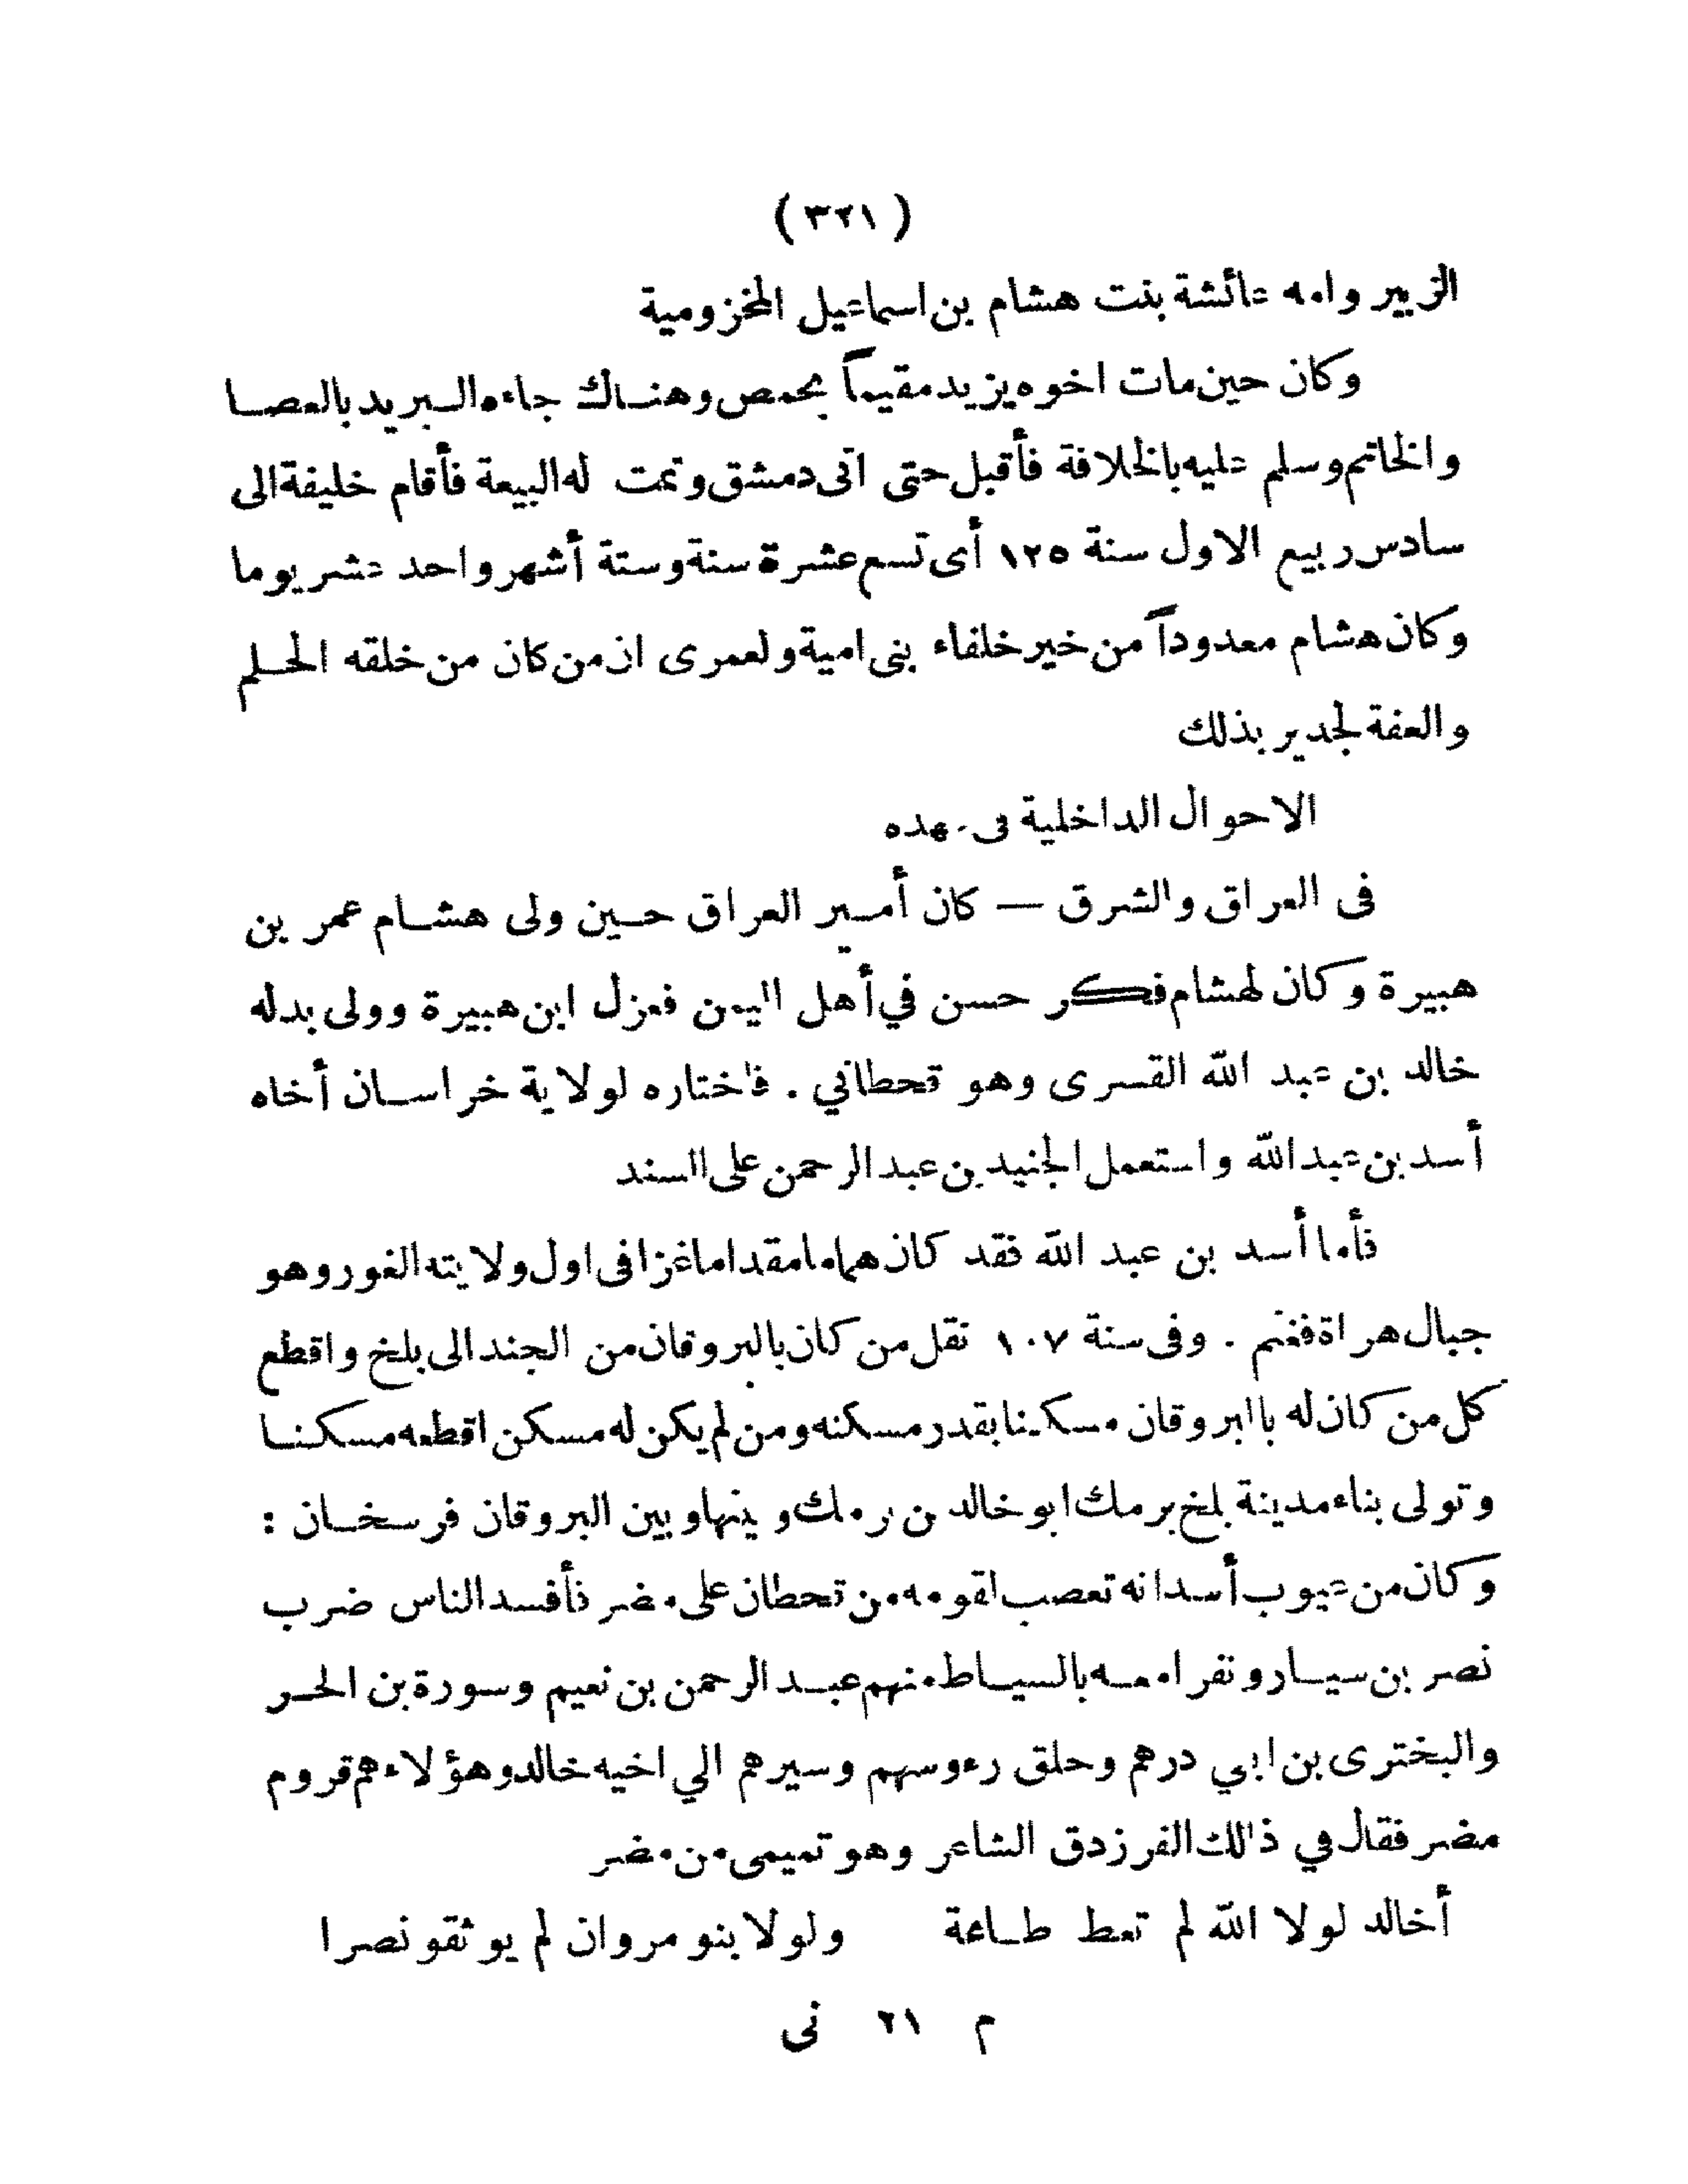 ( ٣٢١ )
الزبير وامه عائشة بنت هشام بن اسماعيل المخزومية
وكان حين مات اخوه يزيد مقيماً بحمص وهناك جاءه البريد بالعصا
والخاتم وسلم عليه بالخلافة فأقبل حتى اتى دمشق وتمت له البيعة فأقام خليفة الى
سادس ربيع الاول سنة ١٢٥ أى تسع عشرة سنة وستة أشهر واحد عشر يوما
وكان هشام معدوداً من خير خلفاء بنى امية ولعمرى ان من كان من خلقه الحلم
والعفة لجدير بذلك
الاحوال الداخلية فى عهده
فى العراق والشرق — كان أمير العراق حين ولى هشام عمر بن
هبيرة وكان لهشام فكر حسن في أهل اليمن فعزل ابن هبيرة وولى بدله
خالد بن عبد الله القسرى وهو قحطاني . فاختاره لولاية خراسان أخاه
أسد بن عبد الله واستعمل الجنيد بن عبد الرحمن على السند
فأما أسد بن عبد الله فقد كان هماما مقداما غزا فى اول ولايته الغور وهو
جبال هراة فغنم . وفى سنة ١٠٧ نقل من كان بالبروقان من الجند الى بلخ واقطع
كل من كان له بالبروقان مسكينا بقدر مسكنه ومن لم يكن له مسكن اقطعه مسكنا
وتولى بناء مدينة بلخ برمك ابو خالد بن برمك وبينها وبين البروقان فرسخان :
وكان من عيوب أسد انه تعصب لقومه من قحطان على مضر فأفسد الناس ضرب
نصر بن سيار ونفرا معه بالسياط منهم عبد الرحمن بن نعيم وسورة بن الحر
والبخترى بن ابي درهم وحلق رءوسهم وسيرهم الي اخيه خالد وهؤلاء هم قروم
مضر فقال في ذلك الفرزدق الشاعر وهو تميمى من مضر
أخالد لولا الله لم تعط طاعة ولولا بنو مروان لم يوثقو نصرا
م ٢١ نى